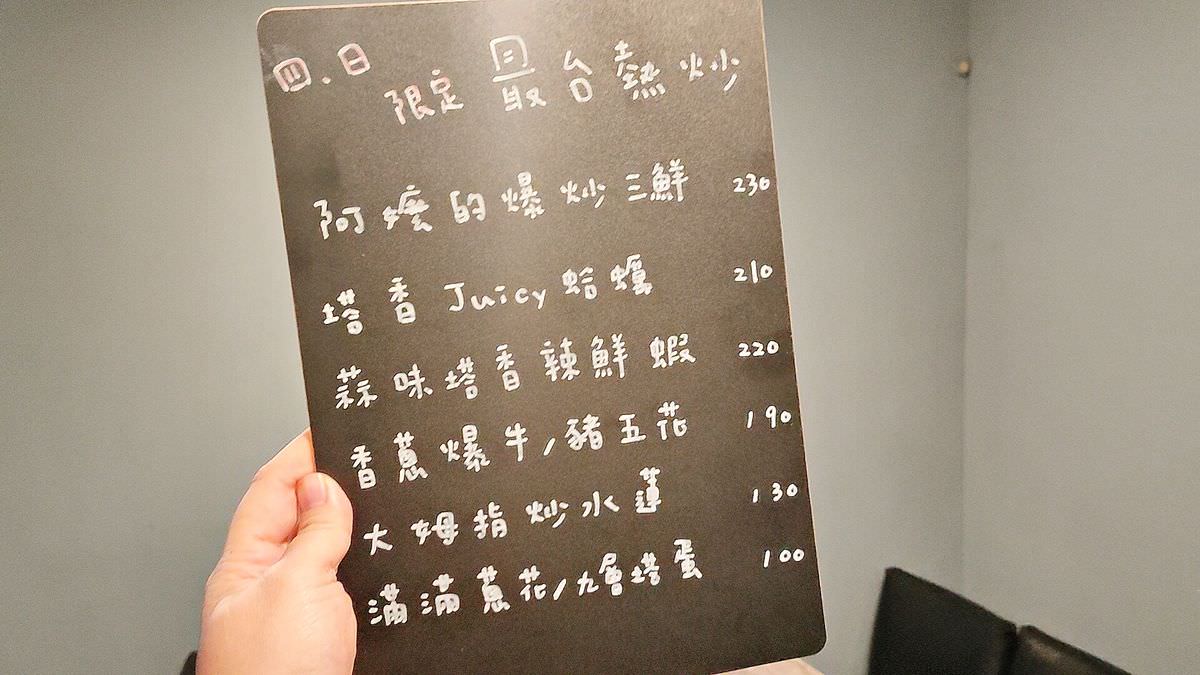 四、日
限定 最台熱炒
阿嬤的爆炒三鮮 230
塔香Juicy蛤蠣 210
蒜味塔香辣鮮蝦 220
香蔥爆牛/豬五花 190
大姆指炒水蓮 130
滿滿蔥花/九層塔蛋 100